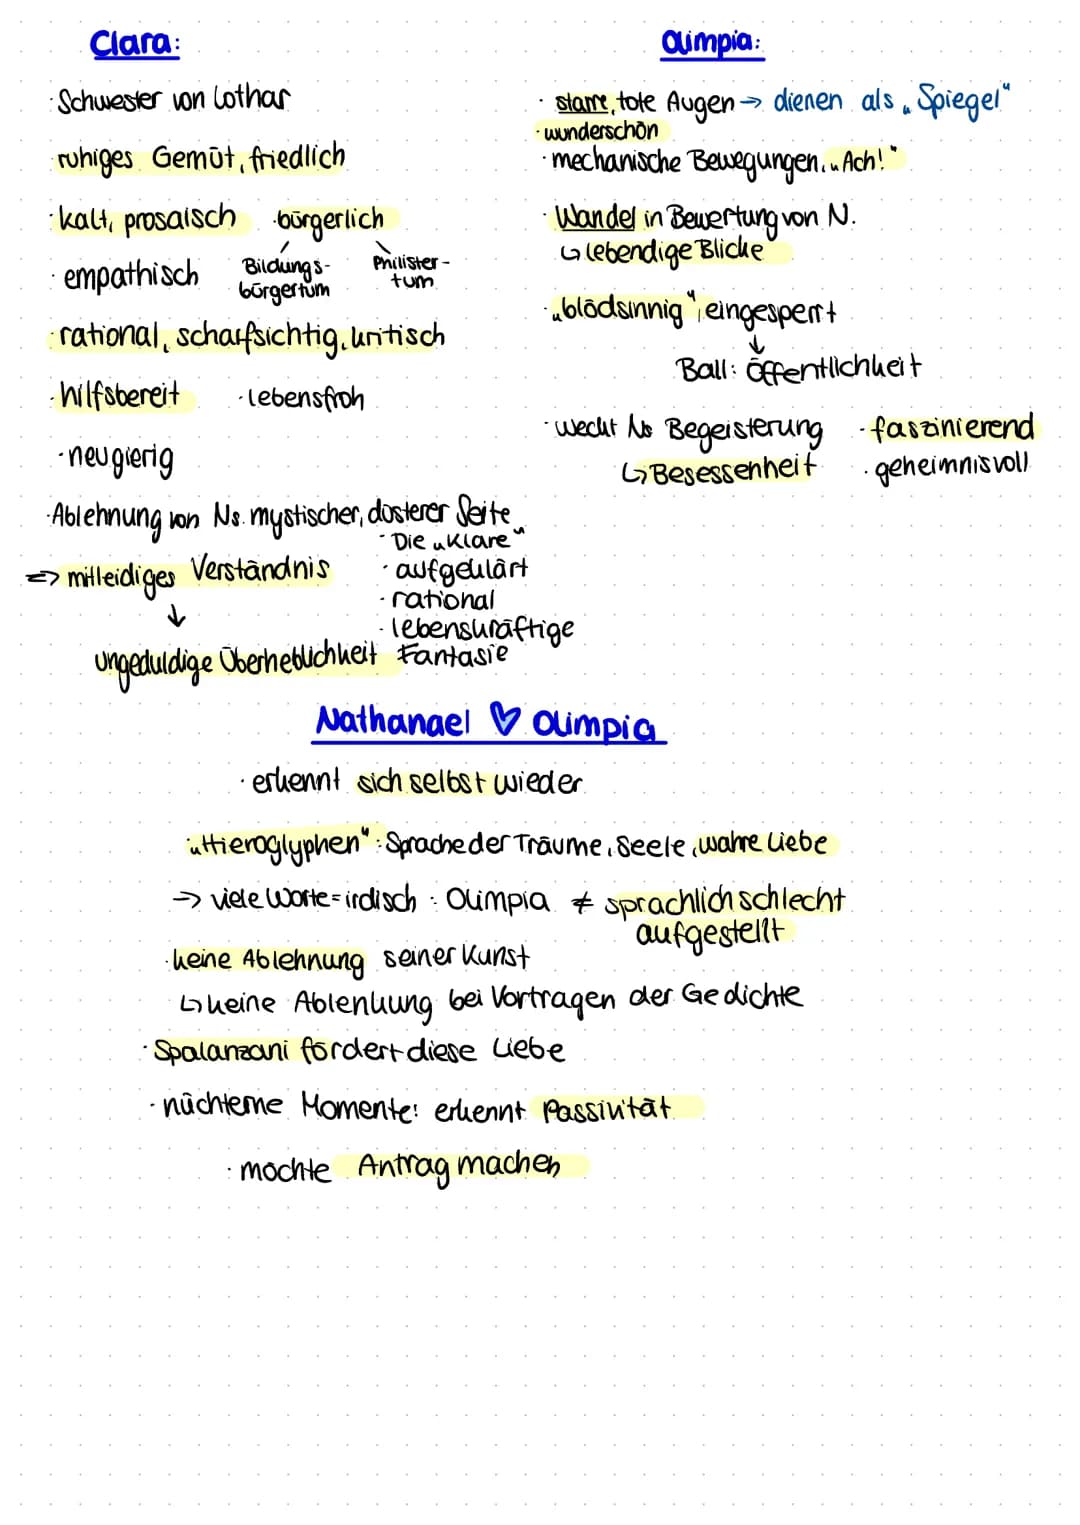 Clara:
· Schwester von Lothar
· ruhiges Gemüt, friedlich
· kalt, prosaisch · bürgerlich
Bildungs-
bürgertum
Philister-
tum
· empathisch
· rational, scharfsichtig, kritisch
· hilfsbereit · lebensfroh
· neugierig
· Ablehnung von Ns. mystischer, düsterer Seite
=> mitleidiges Verständnis
↓
ungeduldige Überheblichkeit
· Die „Klare"
· aufgeklärt
· rational
· lebenskräftige
Fantasie
Olimpia:
· starre, tote Augen → dienen als „Spiegel"
· wunderschön
· mechanische Bewegungen, „Ach!"
· Wandel in Bewertung von N.
↳ lebendige Blicke
· „blödsinnig", eingesperrt
↓
Ball: Öffentlichkeit
· weckt Ns Begeisterung · faszinierend
↳ Besessenheit · geheimnisvoll
Nathanael ♡ Olimpia
· erkennt sich selbst wieder
· „Hieroglyphen": Sprache der Träume, Seele, wahre Liebe
→ viele Worte = irdisch : Olimpia ≠ sprachlich schlecht
aufgestellt
· keine Ablehnung seiner Kunst
↳ keine Ablenkung bei Vortragen der Gedichte
· Spalanzani fördert diese Liebe
· nüchterne Momente: erkennt Passivität
· möchte Antrag machen